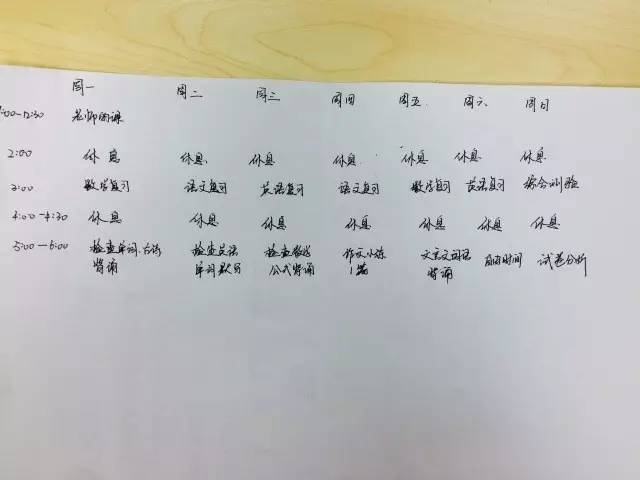 周一 周二 周三 周四 周五 周六 周日
:00-12:30 老师网课
2:00 休息 休息、 休息 休息. 休息 休息 休息
3:00 数学复习 语文复习 英语复习 语文复习 数学复习 英语复习 综合测验
4:00-4:30 休息 休息 休息 休息 休息 休息 休息
5:00-6:00 检查单词、古诗 检查英语 检查数学 作文小练 文言文词语 自由时间 试卷分析
背诵 单词默写 公式背诵 1篇 背诵